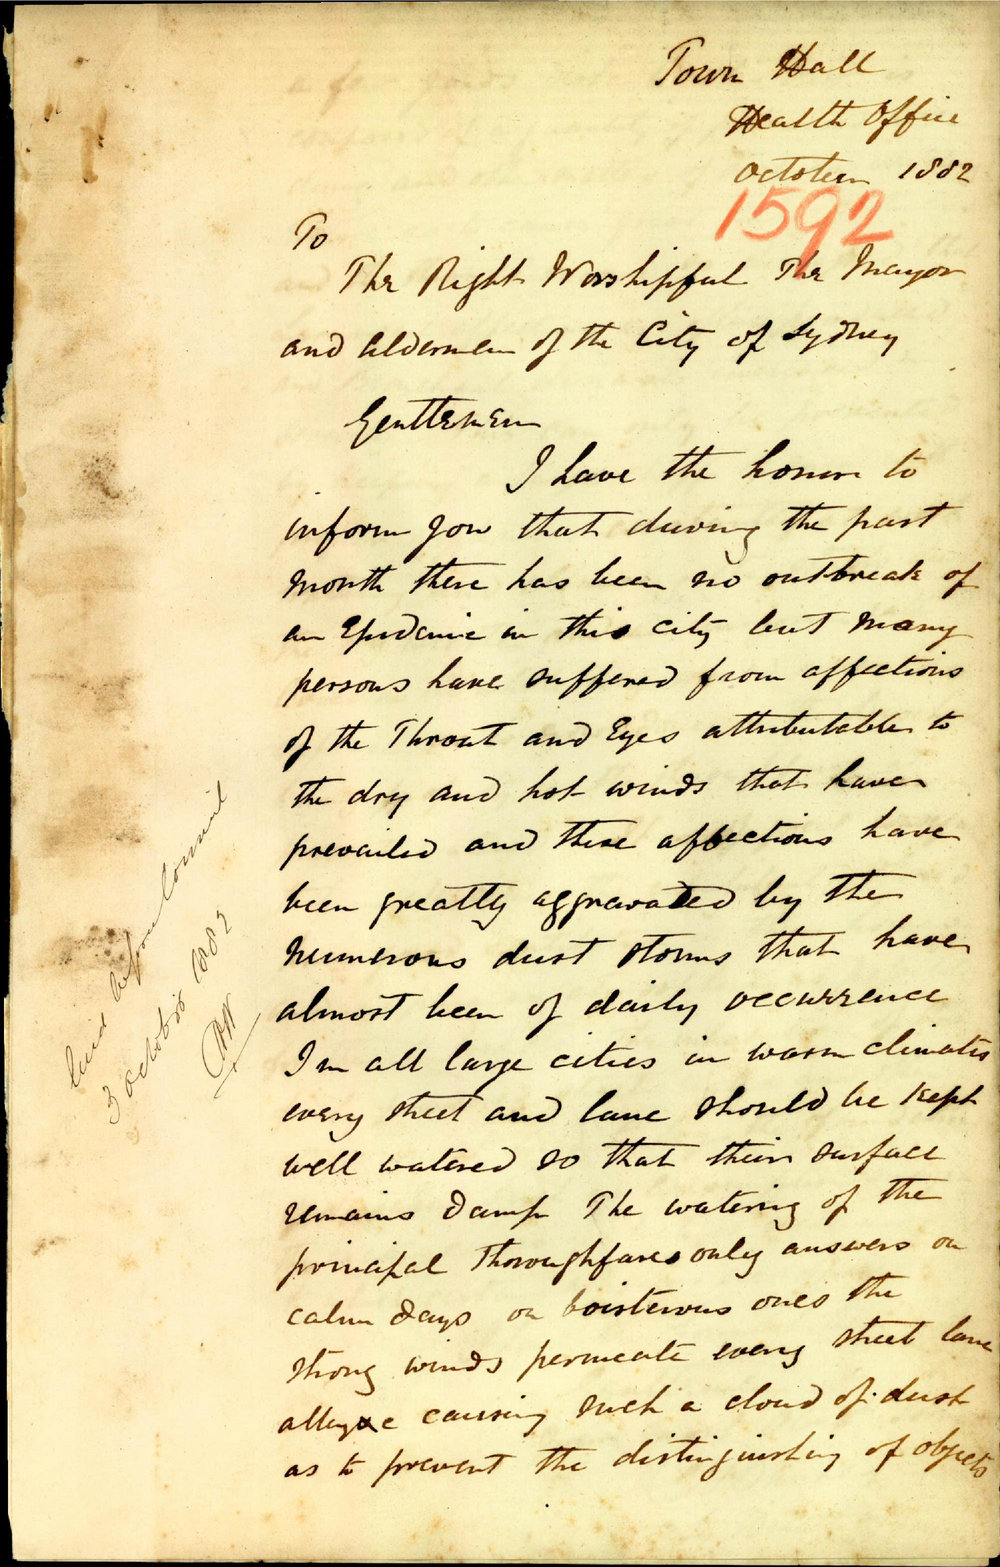 Town Hall
Health Office
October 1882
1592
To
The Right Worshipful The Mayor
and Aldermen of the City of Sydney
Gentlemen
I have the honour to
inform you that during the past
month there has been no outbreak of
an Epidemic in this city but many
persons have suffered from affections
of the Throat and Eyes attributable to
the dry and hot winds that have
prevailed and these affections have
been greatly aggravated by the
numerous dust storms that have
almost been of daily occurrence
In all large cities in warm climates
every street and lane should be kept
well watered so that their surface
remains damp The watering of the
principal thoroughfares only answers on
calm days on boisterous ones the
strong winds permeate every street lane
alley causing such a cloud of dust
as to prevent the distinguishing of objects
laid before Council
3 October 1882